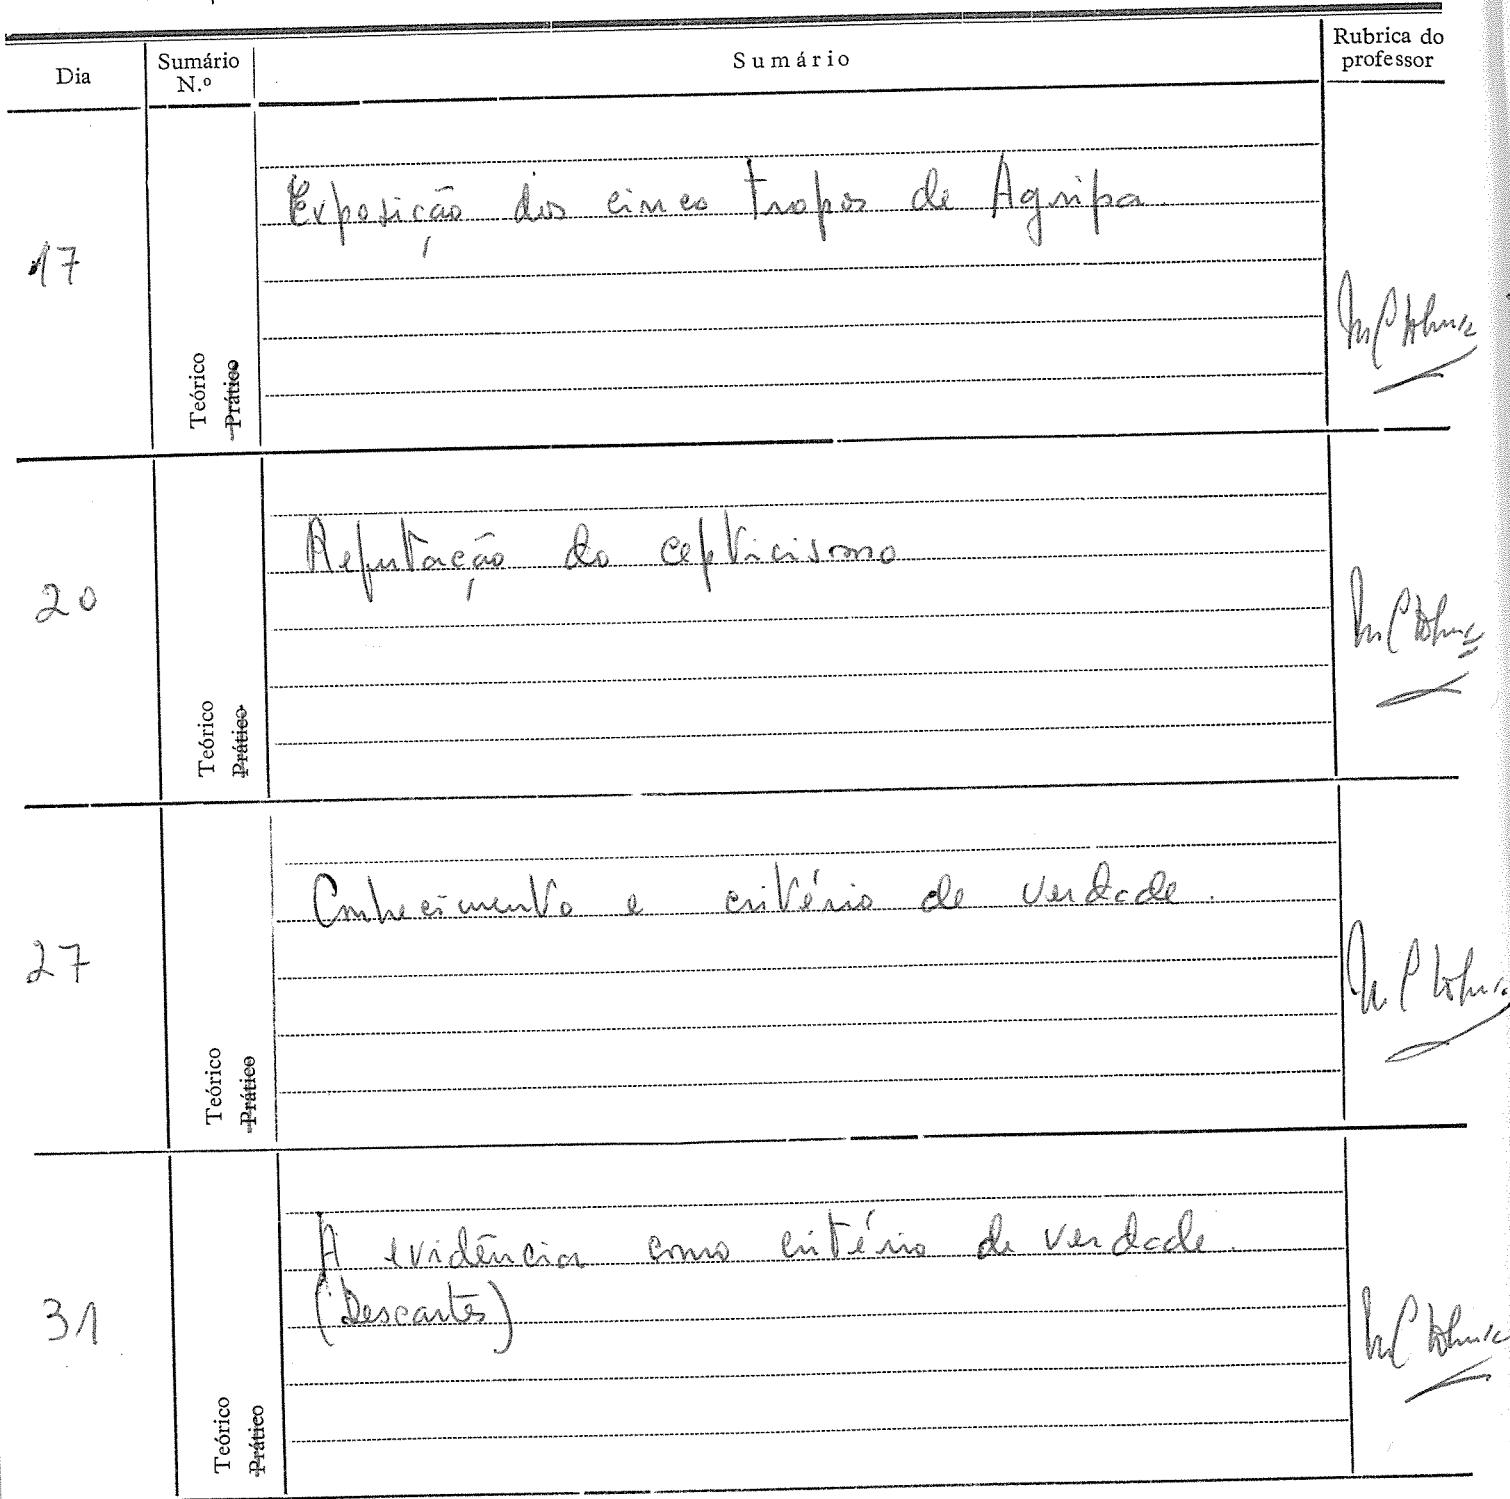 Dia
Sumário
N.º
Sumário
Rubrica do
professor
17
Teórico
Prático
Exposição dos cinco tropos de Agripa.
20
Teórico
Prático
Refutação do cepticismo
27
Teórico
Prático
Conhecimento e critério de verdade.
31
Teórico
Prático
A evidência como critério de verdade.
(Descartes)